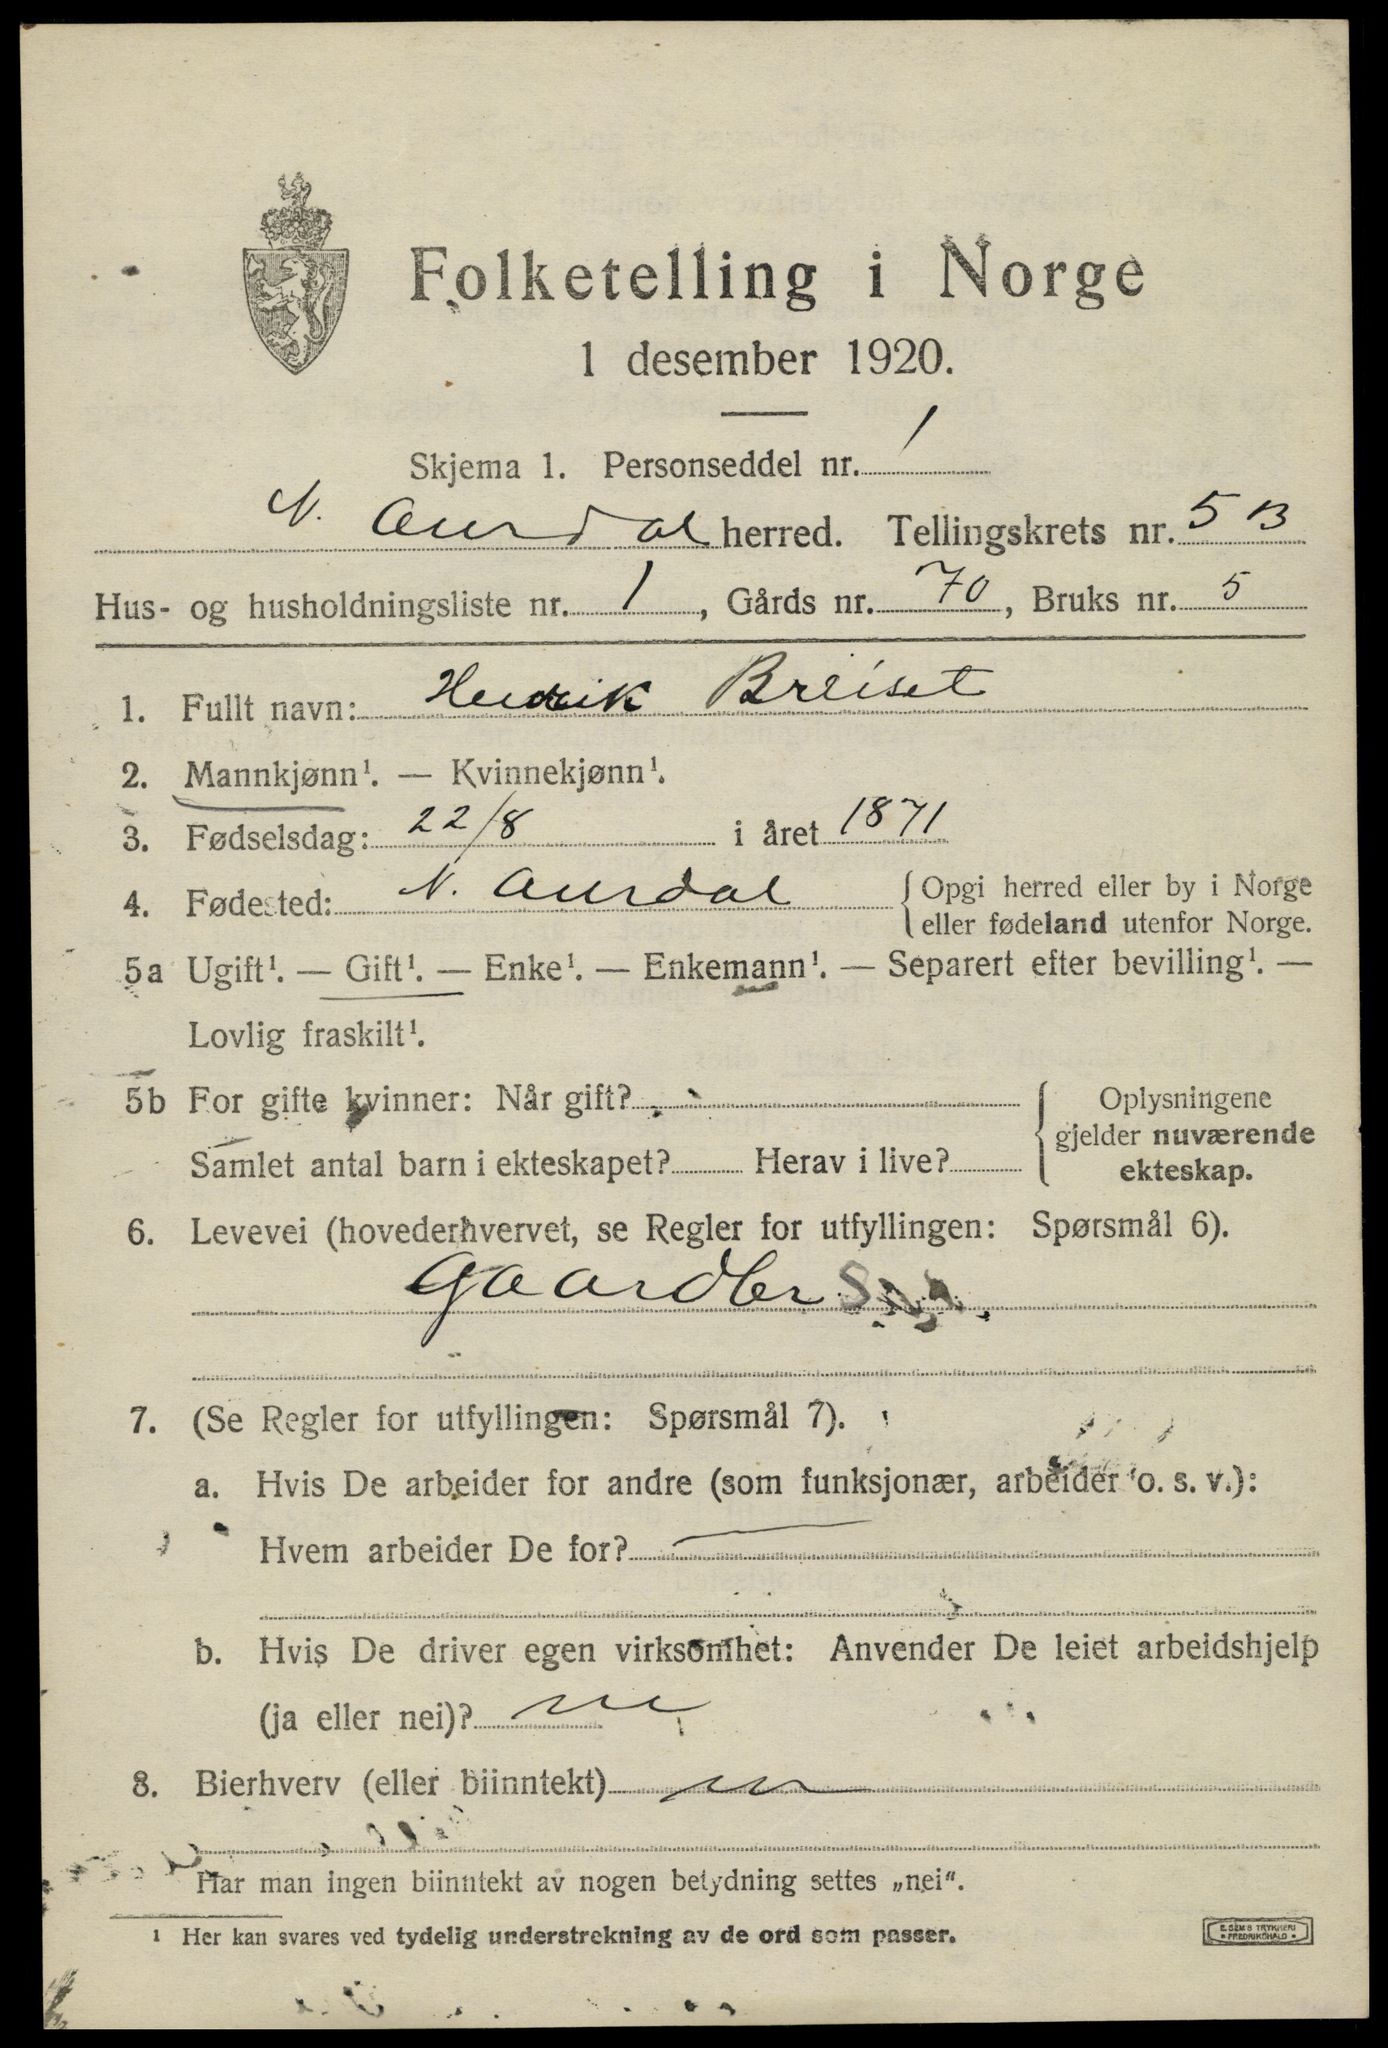 Folketelling i Norge
1 desember 1920.
Skjema 1. Personseddel nr. 1
N. Aurdal herred. Tellingskrets nr. 5 B
Hus- og husholdningsliste nr. 1, Gårds nr. 70, Bruks nr. 5
1. Fullt navn: Hendrik Breiset
2. Mannkjønn¹. — Kvinnekjønn¹.
3. Fødselsdag: 22/8 i året 1871
4. Fødested: N. Aurdal { Opgi herred eller by i Norge
eller fødeland utenfor Norge.
5a Ugift¹. — Gift¹. — Enke¹. — Enkemann¹. — Separert efter bevilling¹. —
Lovlig fraskilt¹.
5b For gifte kvinner: Når gift?
Samlet antal barn i ekteskapet? Herav i live?
Oplysningene
gjelder nuværende
ekteskap.
6. Levevei (hovederhvervet, se Regler for utfyllingen: Spørsmål 6).
Gaardbr
7. (Se Regler for utfyllingen: Spørsmål 7).
a. Hvis De arbeider for andre (som funksjonær, arbeider o. s. v.):
Hvem arbeider De for? —
b. Hvis De driver egen virksomhet: Anvender De leiet arbeidshjelp
(ja eller nei)? nei
8. Bierhverv (eller biinntekt) nei
Har man ingen biinntekt av nogen betydning settes „nei".
¹ Her kan svares ved tydelig understrekning av de ord som passer.
E. SEMS TRYKKERI
FREDRIKSHALD